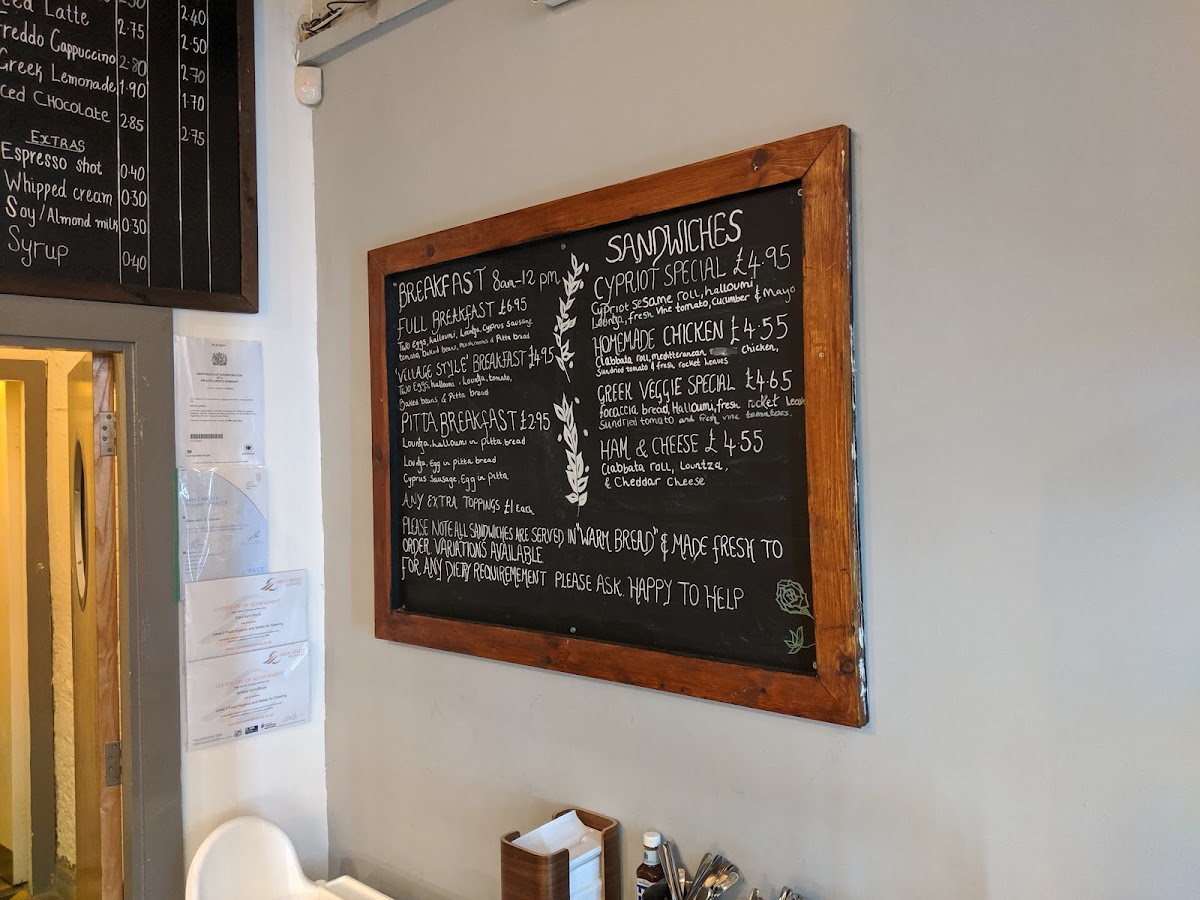 Iced Latte 2.75 2.50
Freddo Cappuccino 2.80 2.70
Greek Lemonade 1.90 1.70
Iced CHOCOLATE 2.85 2.75
EXTRAS
Espresso shot 0.40
Whipped cream 0.30
Soy/Almond milk 0.30
Syrup 0.40
BREAKFAST 8am-12 pm
FULL BREAKFAST £6.95
Two Eggs, halloumi, Lountza, Cyprus Sausage
tomato, Baked beans, mushrooms & Pitta bread
'VILLAGE STYLE' BREAKFAST £4.95
Two Eggs, halloumi, Lountza, tomato,
Baked beans & Pitta bread
PITTA BREAKFAST £2.95
Lountza, halloumi in pitta bread
Lountza, Egg in pitta bread
Cyprus Sausage, Egg in Pitta
ANY EXTRA TOPPINGS £1 Each
SANDWICHES
CYPRIOT SPECIAL £4.95
Cypriot sesame roll, halloumi
Lountza, fresh vine tomato, cucumber & Mayo
HOMEMADE CHICKEN £4.55
Ciabbata roll, meditteranean Chicken,
Sundried tomato & fresh rocket leaves
GREEK VEGGIE SPECIAL £4.65
focaccia bread, Halloumi, fresh rocket
Sundried tomato and fresh vine tomatoes.
HAM & CHEESE £4.55
Ciabbata roll, Lountza,
& Cheddar Cheese
PLEASE NOTE ALL SANDWICHES ARE SERVED IN "WARM BREAD" & MADE FRESH TO
ORDER VARIATIONS AVAILABLE
FOR ANY DIETRY REQUIREMEMENT PLEASE ASK. HAPPY TO HELP
CERTIFICATE OF ACHIEVEMENT
CERTIFICATE OF ACHIEVEMENT